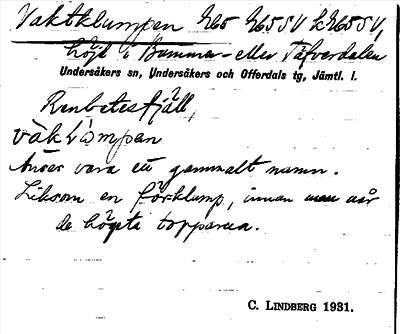 Vaktklumpen 265 265SV k265SV,
höjd i Bumma- eller Täfverdalen
Undersåkers sn, Undersåkers och Offerdals tg, Jämtl. l.
Renbetesfjäll,
Anses vara ett gammalt namn.
Liksom en förklump, innan man når
de högsta topparna.
C. LINDBERG 1931.